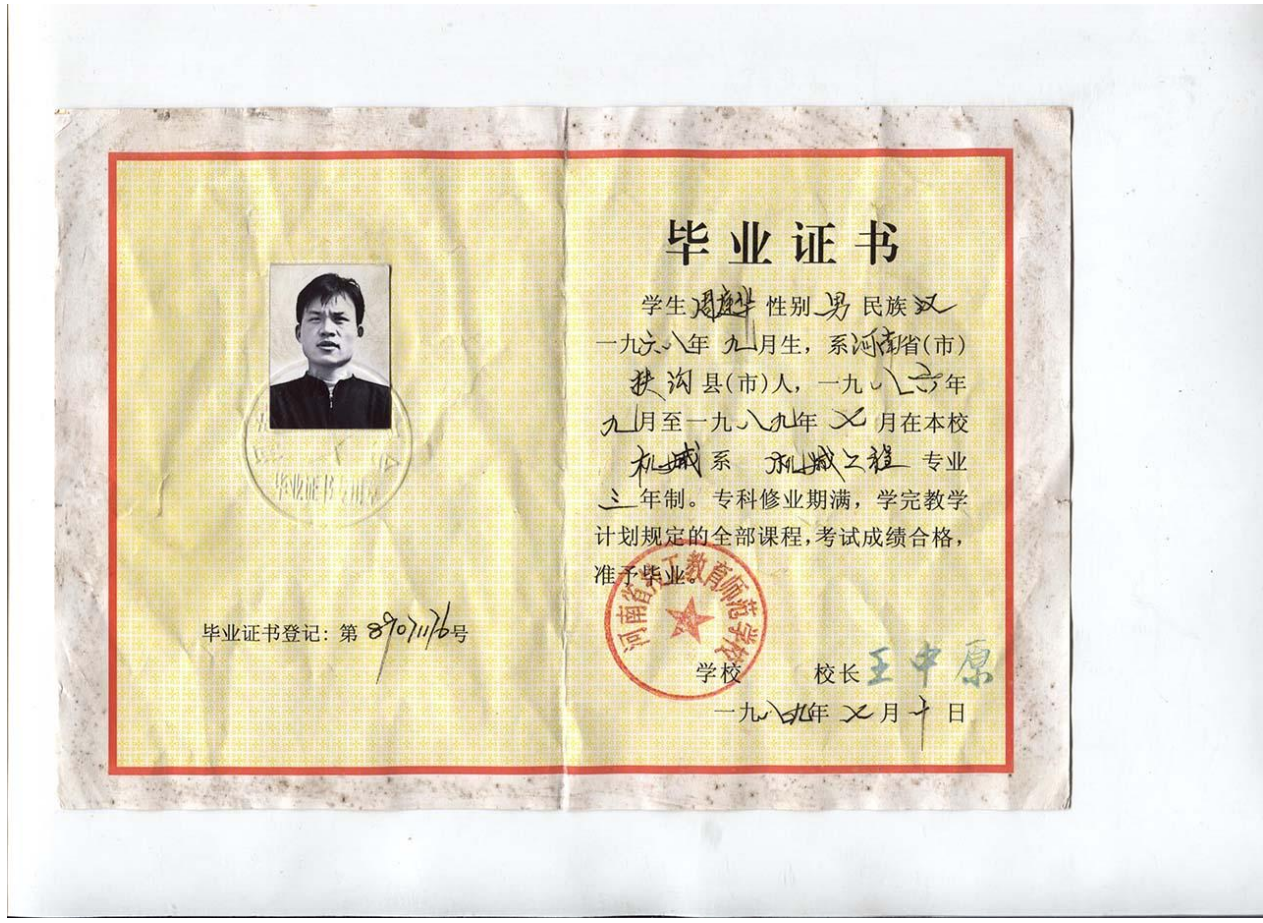 毕业证书
学生周建华 性别 男 民族 汉
一九六八年 九月生，系河南省(市)
扶沟县(市)人，一九八六年
九月至一九八九年 七 月在本校
机械系 机械工程 专业
三年制。专科修业期满，学完教学
计划规定的全部课程,考试成绩合格，
准予毕业。
河南省劳工教育师范学校
学校 校长王中原
一九八九年 七月十日
毕业证书专用章
毕业证书登记：第 89071176号